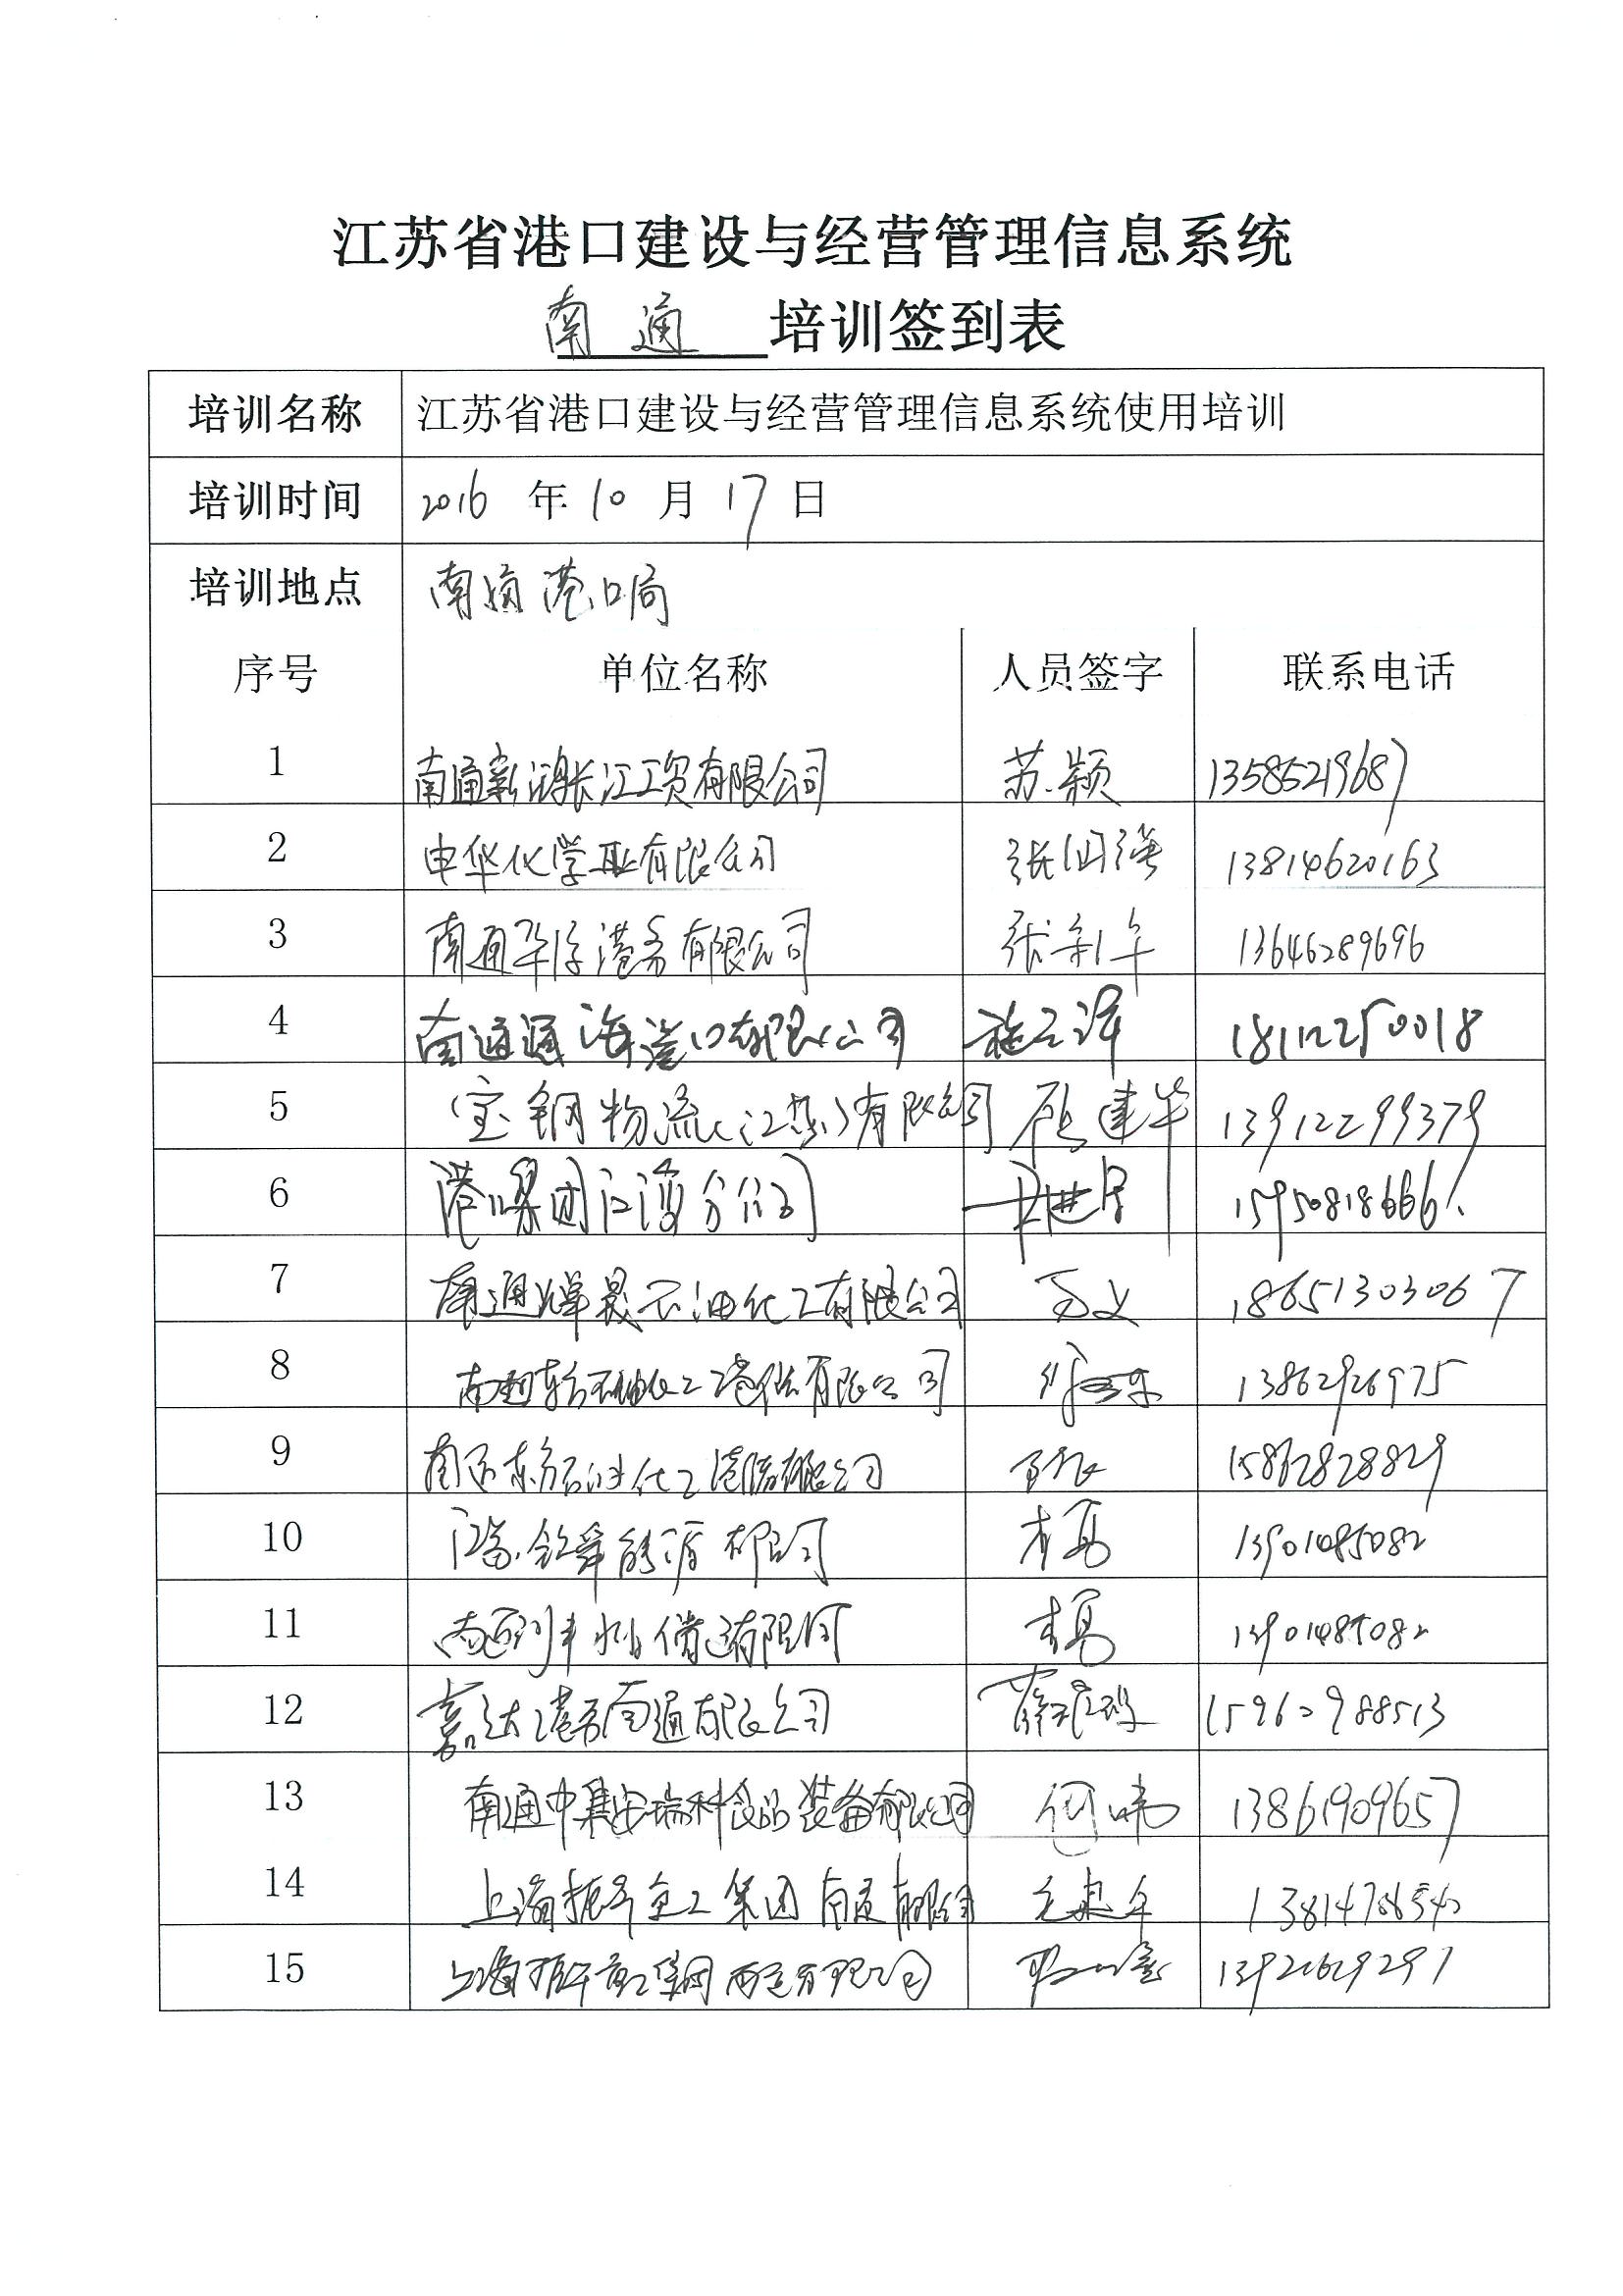 江苏省港口建设与经营管理信息系统
南通 培训签到表
培训名称 江苏省港口建设与经营管理信息系统使用培训
培训时间 2016 年 10 月 17 日
培训地点 南通港口局
序号 单位名称 人员签字 联系电话
1 南通新鸿长江工贸有限公司 苏颖 13585219687
2 申华化学工业有限公司 张国强 13814620163
3 南通华 港务有限公司 张 年 13646289696
4 南通通海港口有限公司 18112250018
5 宝钢物流(江苏)有限公司 顾建华 13912299379
6 港口集团江海分公司 15950818666
7 南通 石油化工有限公司 18651303067
8 南通东方石油化工港储有限公司 13862926975
9 南通东方石油化工港储有限公司 15862828829
10 能源有限公司 13901485082
11 南通 有限公司 13901485082
12 嘉达港务南通有限公司 薛 15962988513
13 南通中集安瑞科食品装备有限公司 何 13861909657
14 上海振华重工集团南通有限公司
15 上海振华重工集团南通有限公司 13921629291